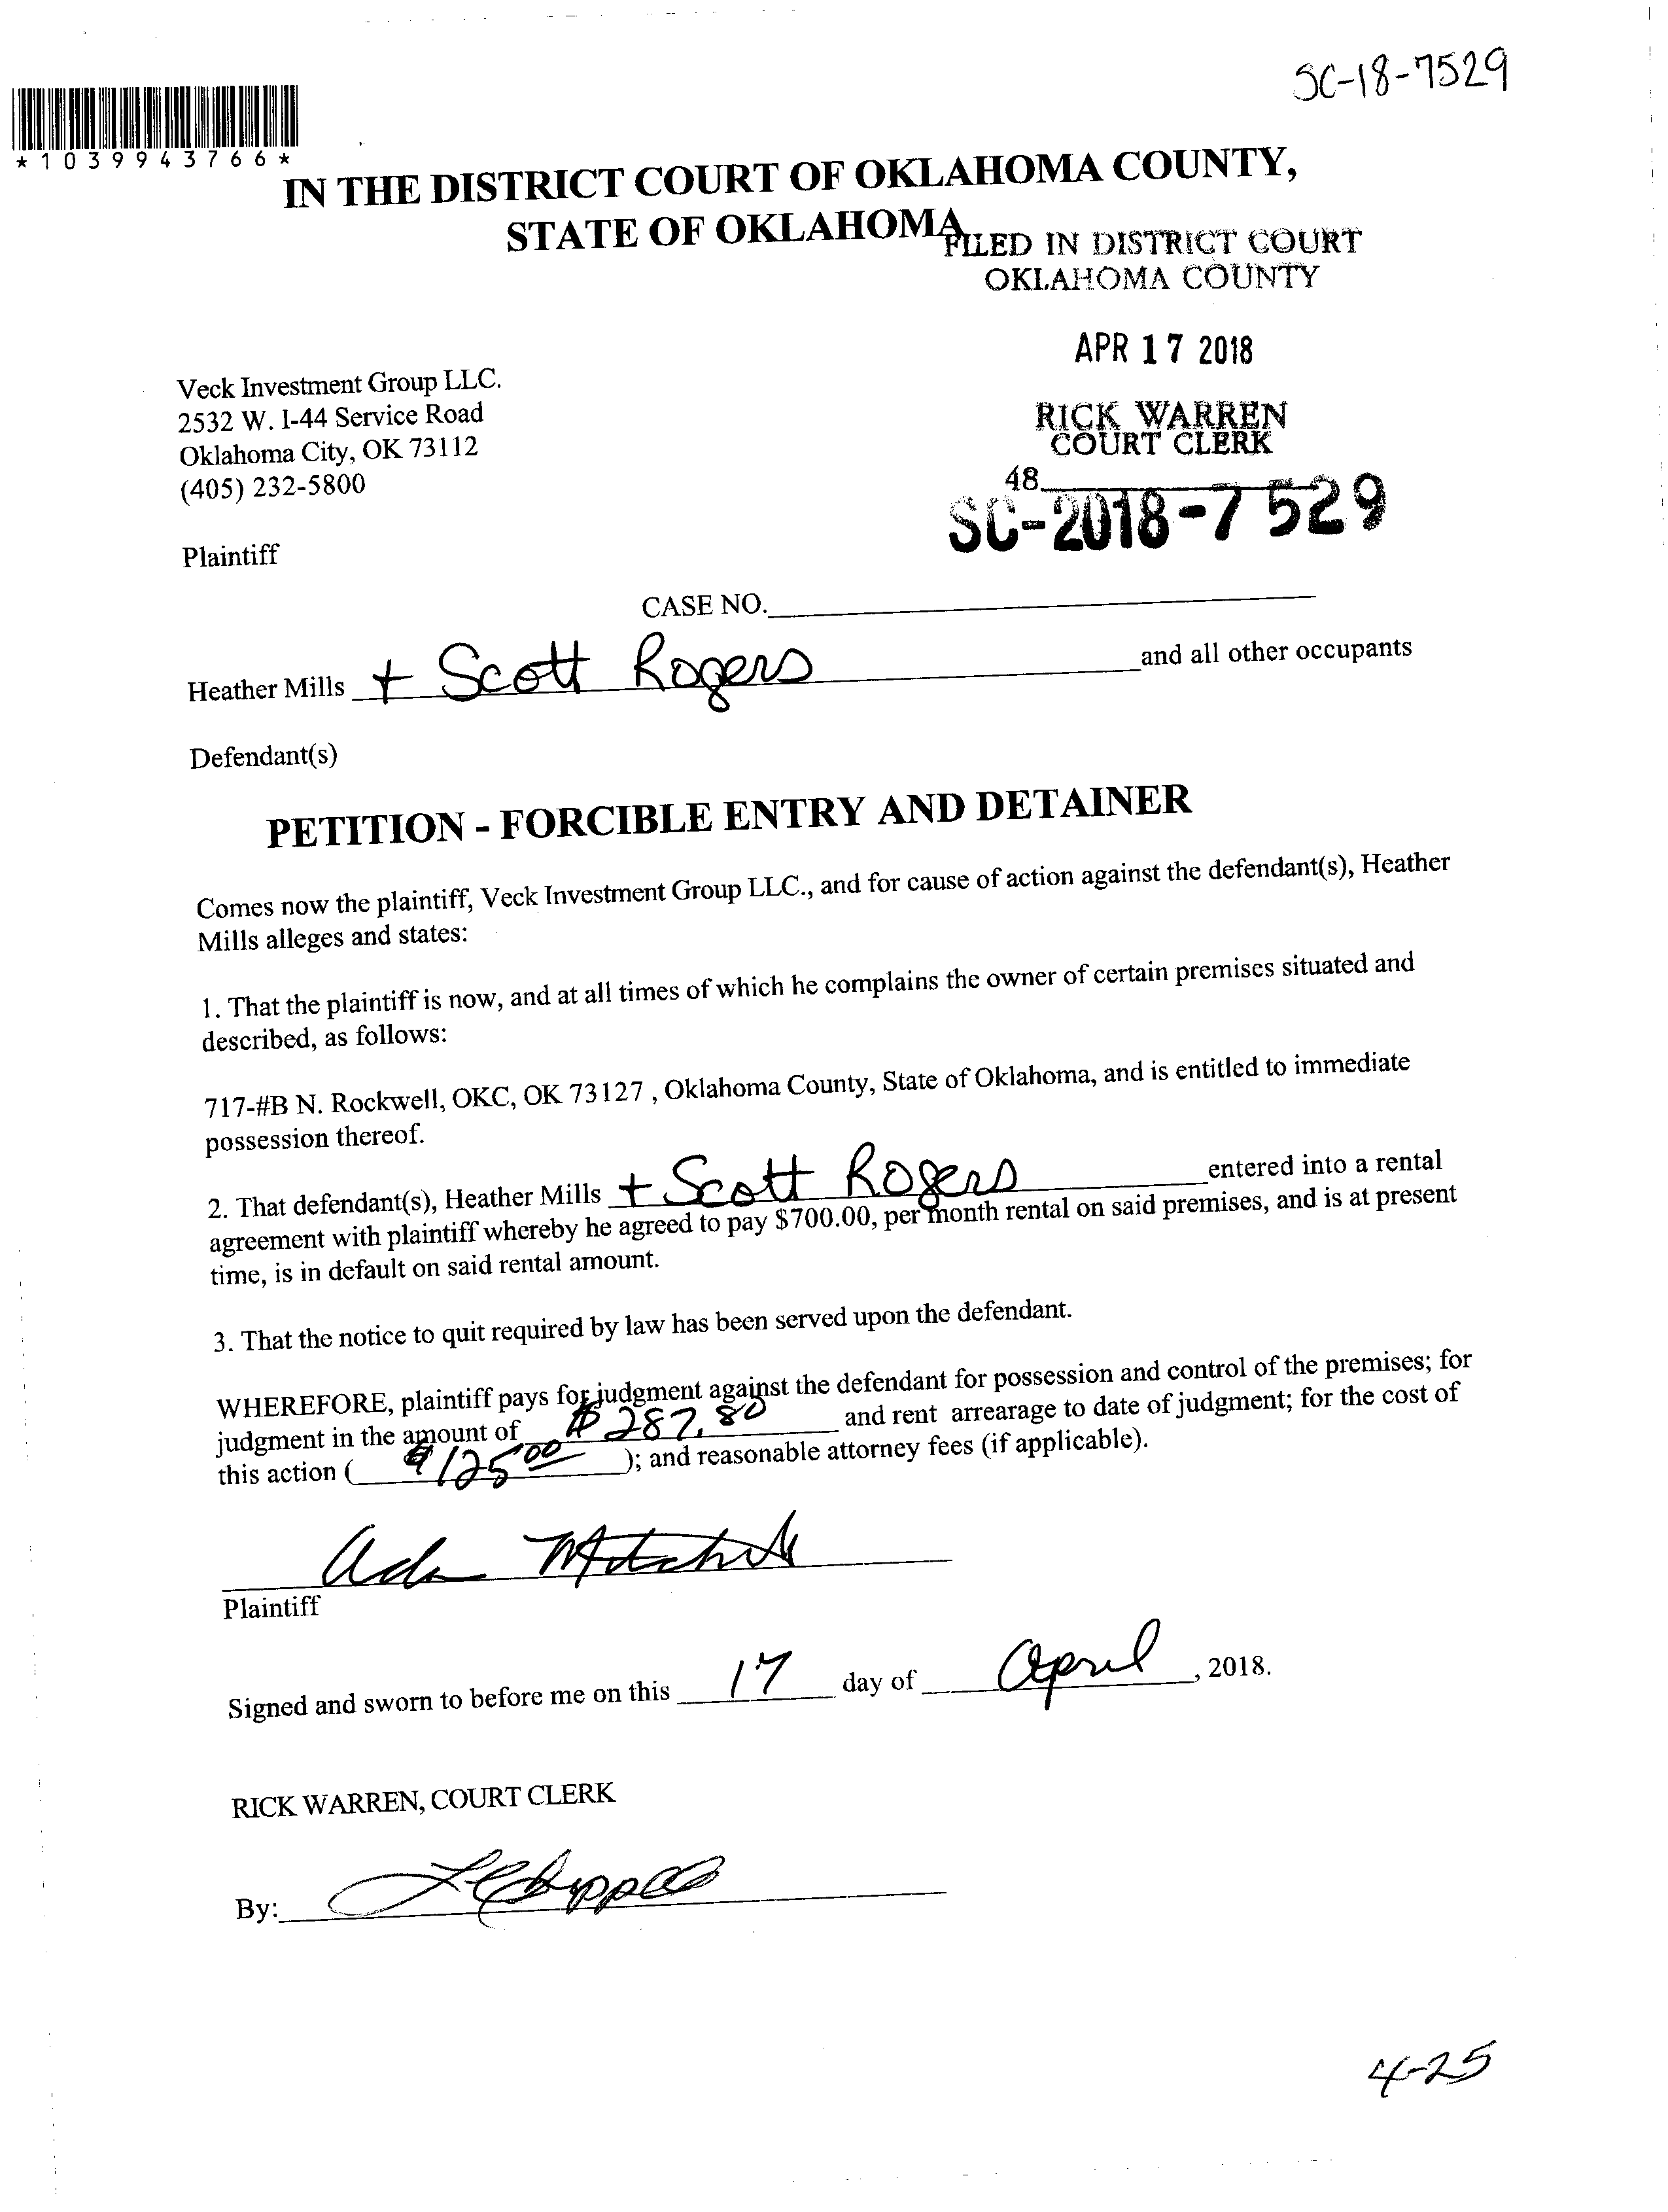 SC-18-7529
*1039943766*
IN THE DISTRICT COURT OF OKLAHOMA COUNTY,
STATE OF OKLAHOMA
FILED IN DISTRICT COURT
OKLAHOMA COUNTY
APR 17 2018
RICK WARREN
COURT CLERK
48
SC-2018-7529
Veck Investment Group LLC.
2532 W. I-44 Service Road
Oklahoma City, OK 73112
(405) 232-5800
Plaintiff
CASE NO.
Heather Mills + Scott Rogers and all other occupants
Defendant(s)
PETITION - FORCIBLE ENTRY AND DETAINER
Comes now the plaintiff, Veck Investment Group LLC., and for cause of action against the defendant(s), Heather
Mills alleges and states:
1. That the plaintiff is now, and at all times of which he complains the owner of certain premises situated and
described, as follows:
717-#B N. Rockwell, OKC, OK 73127 , Oklahoma County, State of Oklahoma, and is entitled to immediate
possession thereof.
2. That defendant(s), Heather Mills + Scott Rogers entered into a rental
agreement with plaintiff whereby he agreed to pay $700.00, per month rental on said premises, and is at present
time, is in default on said rental amount.
3. That the notice to quit required by law has been served upon the defendant.
WHEREFORE, plaintiff pays for judgment against the defendant for possession and control of the premises; for
judgment in the amount of $287.80 and rent arrearage to date of judgment; for the cost of
this action ( $125.00 ); and reasonable attorney fees (if applicable).
Plaintiff
Signed and sworn to before me on this 17 day of April, 2018.
RICK WARREN, COURT CLERK
By:
4-25